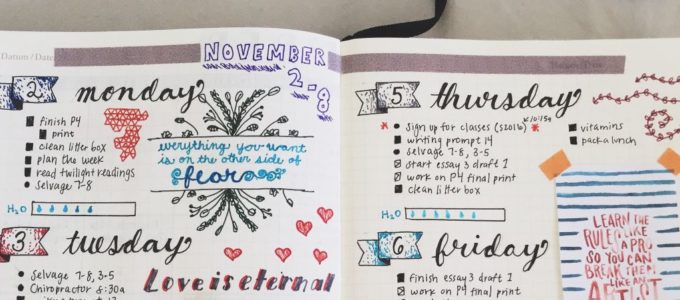 Datum / Date
NOVEMBER
2-8
2 monday
finish P4
print
clean litter box
plan the week
read twilight readings
Selvage 7-8
H2O
everything you want
is on the other side of
fear
3 tuesday
Selvage 7-8, 3-5
Chiropractor 8:30a
Love is eternal
5 thursday
Sign up for classes (S2016)
writing prompt 14
Selvage 7-8, 3-5
start essay 3 draft 1
work on P4 final print
clean litter box
H2O
vitamins
pack a lunch
6 friday
finish essay 3 draft 1
work on P4 final print
LEARN THE
RULES LIKE
A PRO
SO YOU CAN
BREAK THEM
LIKE AN
ARTIST